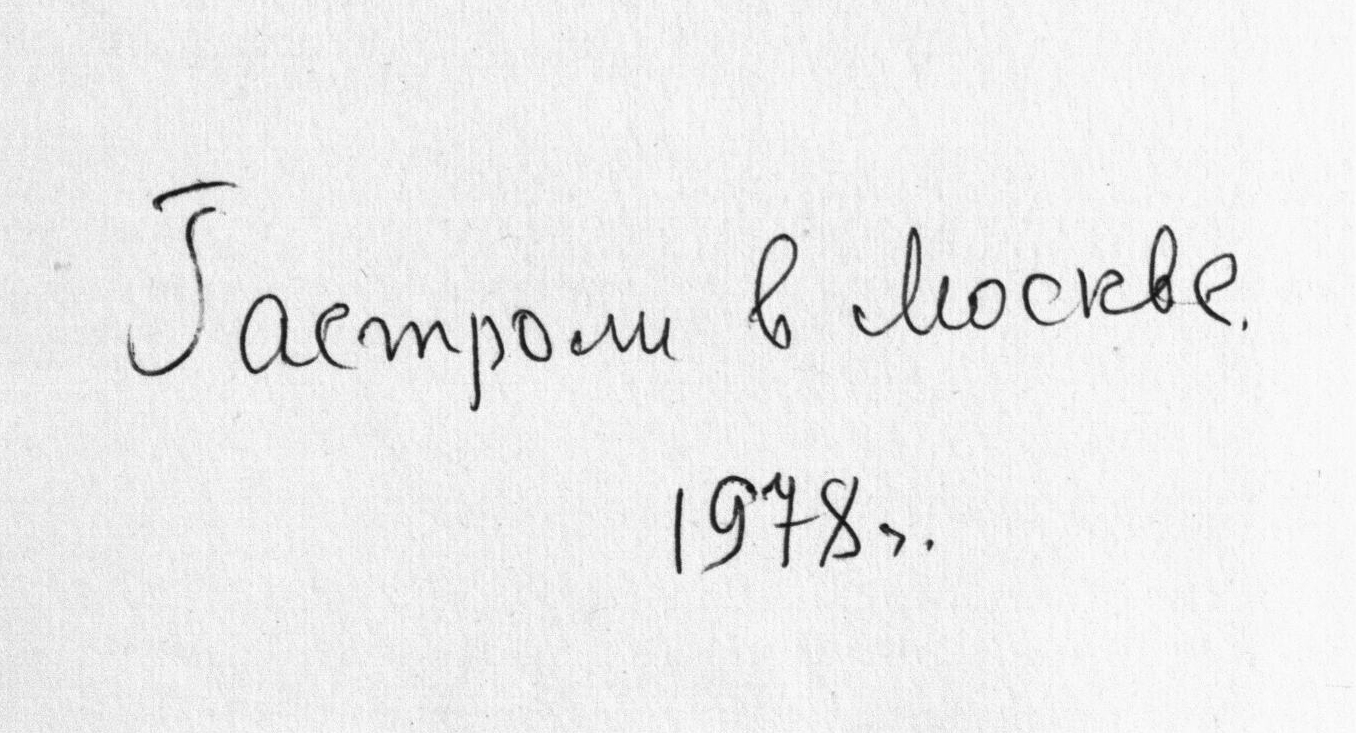 Гастроли в Москве.
1978 г.